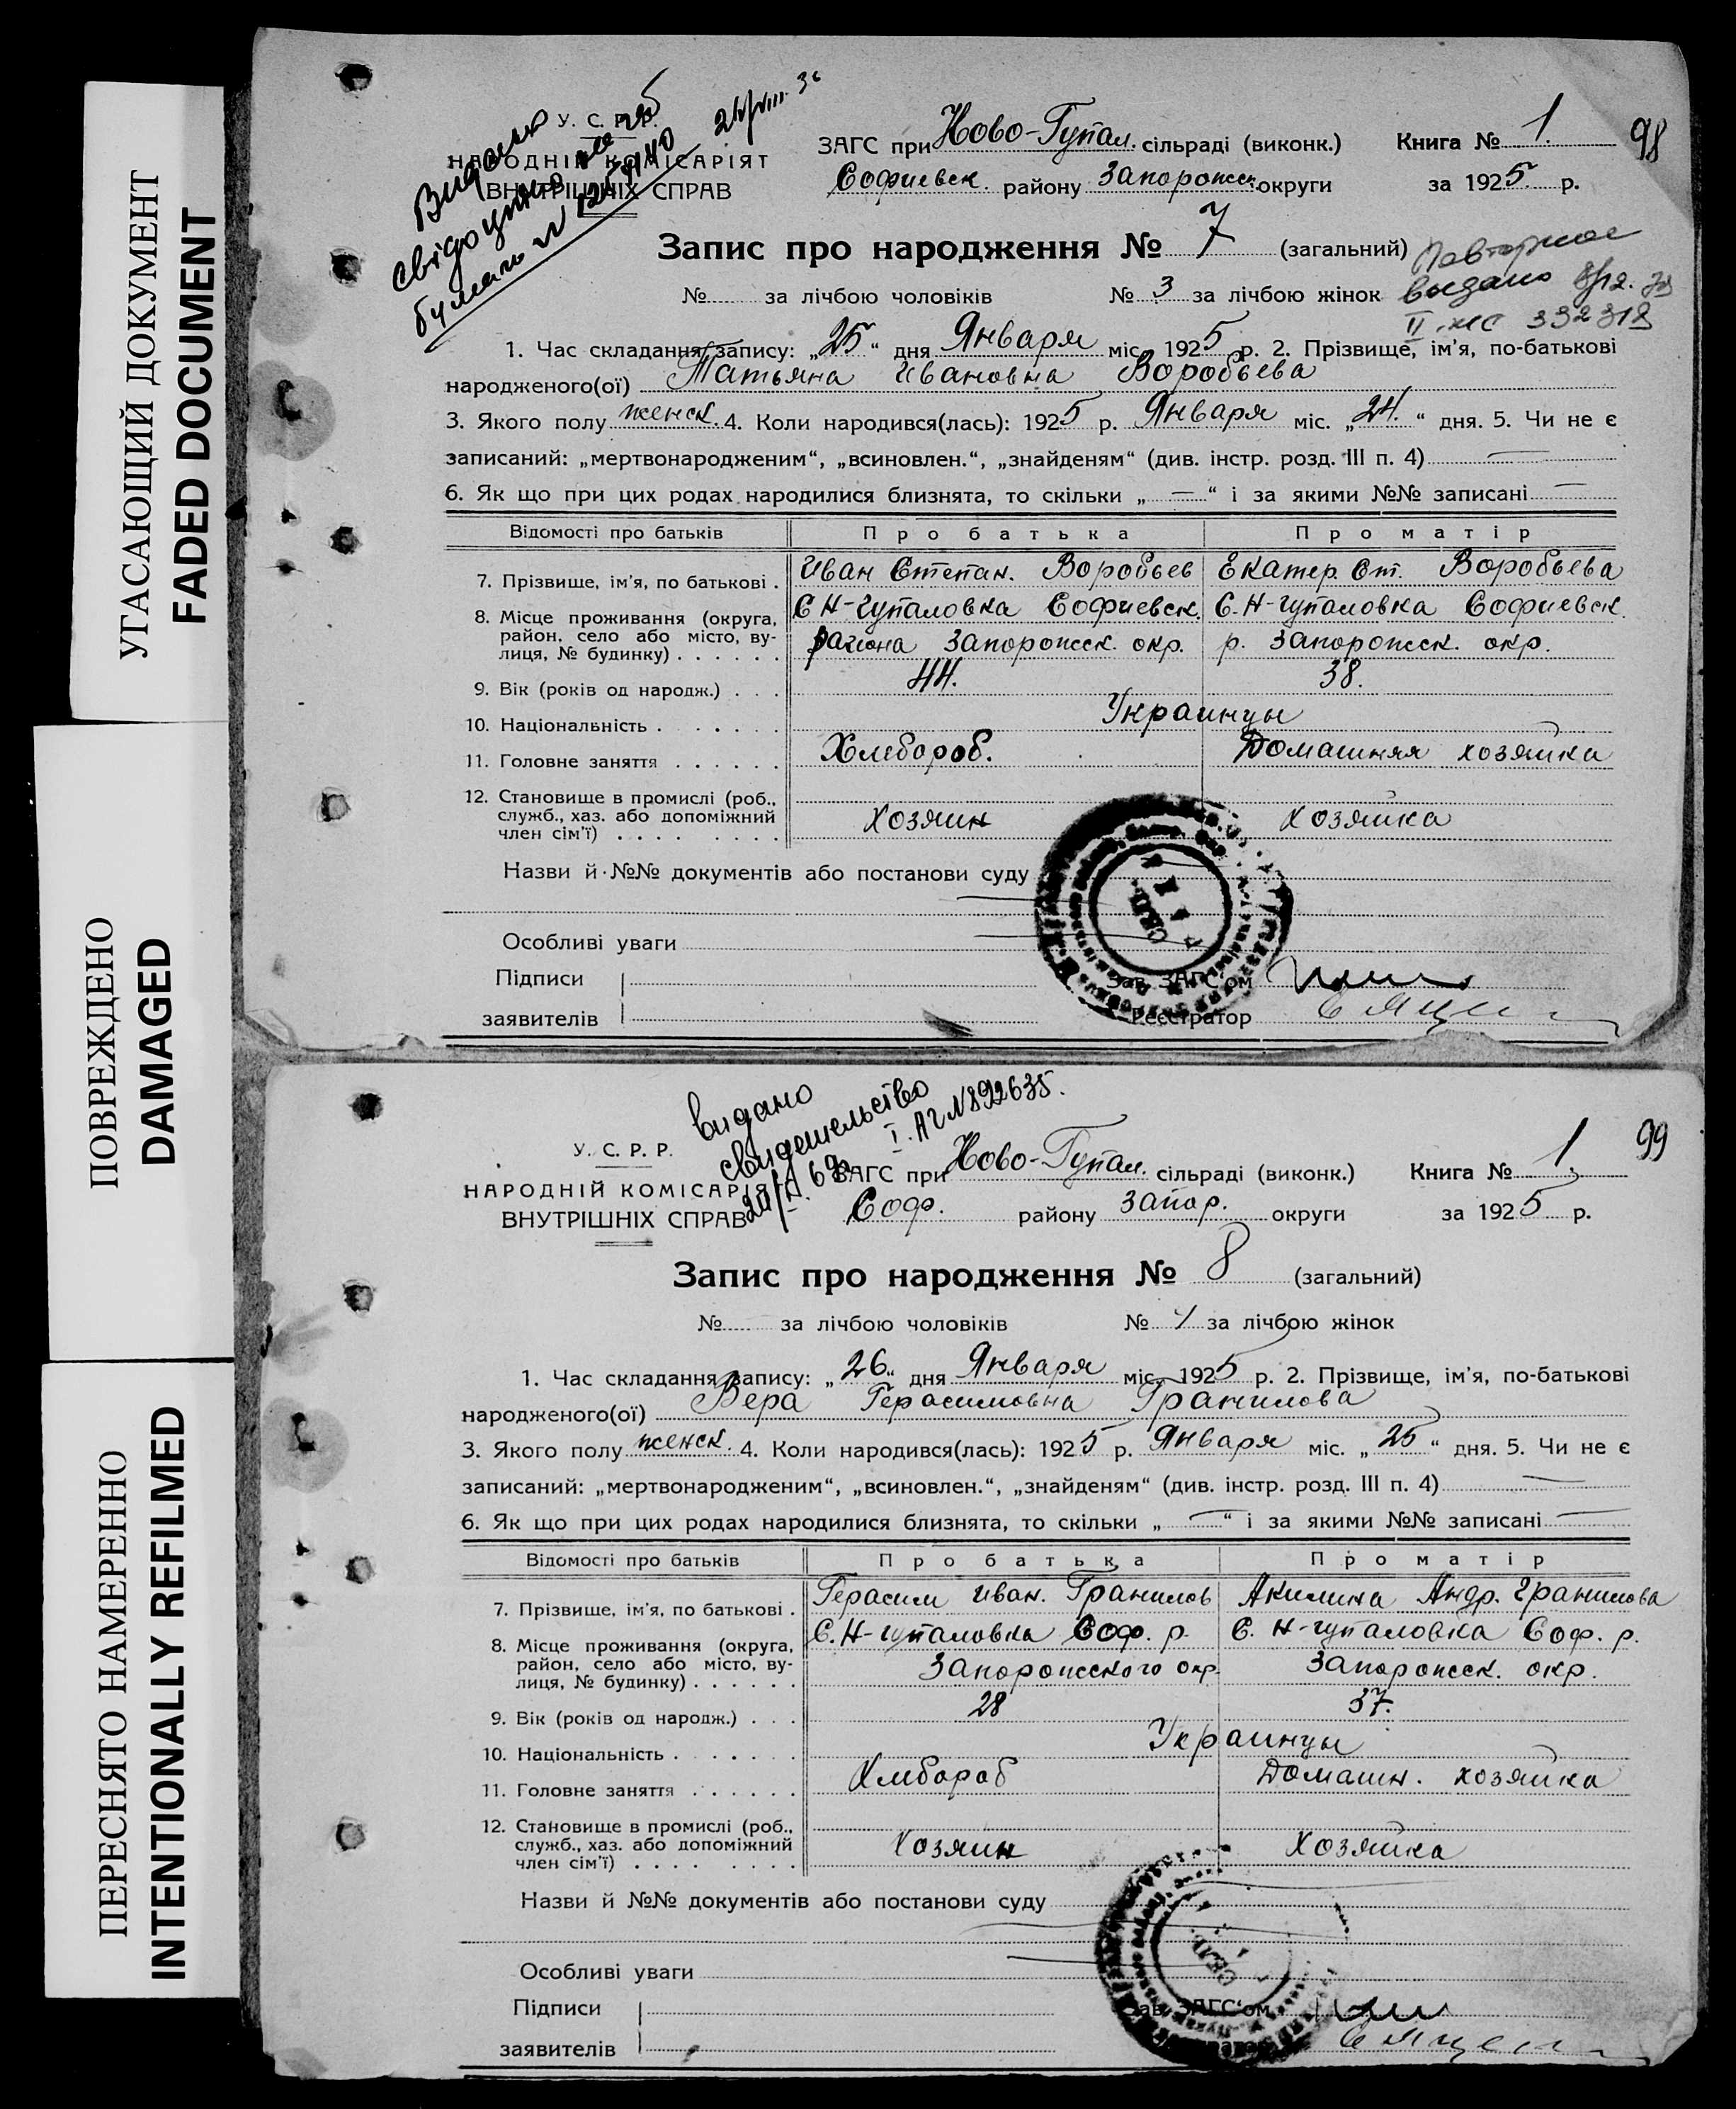 УГАСАЮЩИЙ ДОКУМЕНТ
FADED DOCUMENT
ПОВРЕЖДЕНО
DAMAGED
ПЕРЕСНЯТО НАМЕРЕННО
INTENTIONALLY REFILMED
98
У. С. Р. Р.
НАРОДНІЙ КОМІСАРІЯТ
ВНУТРІШНІХ СПРАВ
Видано
свідоцтво
ЗАГС при Ново-Гупал. сільраді (виконк.) Книга № 1.
Софиевск. району Запорожск. округи за 1925 р.
Запис про народження № 7 (загальний)
Повторное
выдано
II
332318
№ за лічбою чоловіків № 3 за лічбою жінок
1. Час складання запису: „25“ дня Января міс. 1925 р. 2. Прізвище, ім’я, по-батькові
народженого(ої) Татьяна Ивановна Воробьева
3. Якого полу женск. 4. Коли народився(лась): 1925 р. Января міс. „24.“ дня. 5. Чи не є
записаний: „мертвонародженим“, „всиновлен.“, „знайденям“ (див. інстр. розд. III п. 4) —
6. Як що при цих родах народилися близнята, то скільки „ — “ і за якими №№ записані —
Відомості про батьків Про батька Про матір
7. Прізвище, ім’я, по батькові . Иван Степан. Воробьев Екатер. Ст. Воробьева
8. Місце проживання (округа, район, село або місто, вулиця, № будинку) . . . . . . С Н-Гупаловка Софиевск. С. Н-Гупаловка Софиевск.
района Запорожск. окр. р. Запорожск. окр.
9. Вік (років од народж.) . . . 44. 38.
10. Національність . . . . . . Украинцы
11. Головне заняття . . . . . . Хлебороб. Домашняя хозяйка
12. Становище в промислі (роб., служб., хаз. або допоміжний член сім’ї) . . . . . . . . Хозяин Хозяйка
Назви й №№ документів або постанови суду
Особливі уваги
Підписи
заявителів
Зав. ЗАГС‘ом
Реєстратор
99
видано
свидетельство
I. АГ №892635.
У. С. Р. Р.
НАРОДНІЙ КОМІСАРІЯТ
ВНУТРІШНІХ СПРАВ
ЗАГС при Ново-Гупал. сільраді (виконк.) Книга № 1.
Соф. району Запор. округи за 1925 р.
Запис про народження № 8 (загальний)
№ за лічбою чоловіків № 4 за лічбою жінок
1. Час складання запису: „26“ дня Января міс. 1925 р. 2. Прізвище, ім’я, по-батькові
народженого(ої) Вера Герасимовна Гранилова
3. Якого полу женск. 4. Коли народився(лась): 1925 р. Января міс. „25“ дня. 5. Чи не є
записаний: „мертвонародженим“, „всиновлен.“, „знайденям“ (див. інстр. розд. III п. 4) —
6. Як що при цих родах народилися близнята, то скільки „ — “ і за якими №№ записані —
Відомості про батьків Про батька Про матір
7. Прізвище, ім’я, по батькові . Герасим Иван. Гранилов Акилина Андр. Гранилова
8. Місце проживання (округа, район, село або місто, вулиця, № будинку) . . . . . . С. Н-Гупаловка Соф. р. С. Н-Гупаловка Соф. р.
Запорожского окр. Запорожск. окр.
9. Вік (років од народж.) . . . 28 37.
10. Національність . . . . . . . Украинцы
11. Головне заняття . . . . . . Хлебороб Домашн. хозяйка
12. Становище в промислі (роб., служб., хаз. або допоміжний член сім’ї) . . . . . . . . Хозяин Хозяйка
Назви й №№ документів або постанови суду
Особливі уваги
Підписи
заявителів
Зав. ЗАГС‘ом